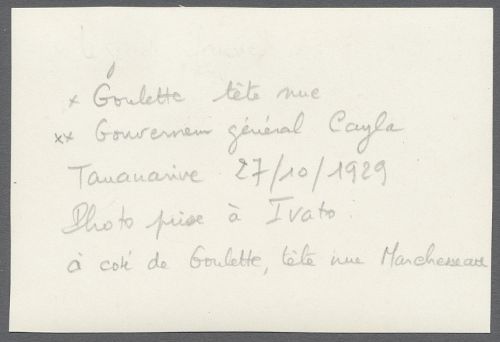 x Goulette tête nue
xx Gouverneur général Cayla
Tananarive 27/10/1929
Photo prise à Ivato.
à coté de Goulette, tête nue Marchesseau